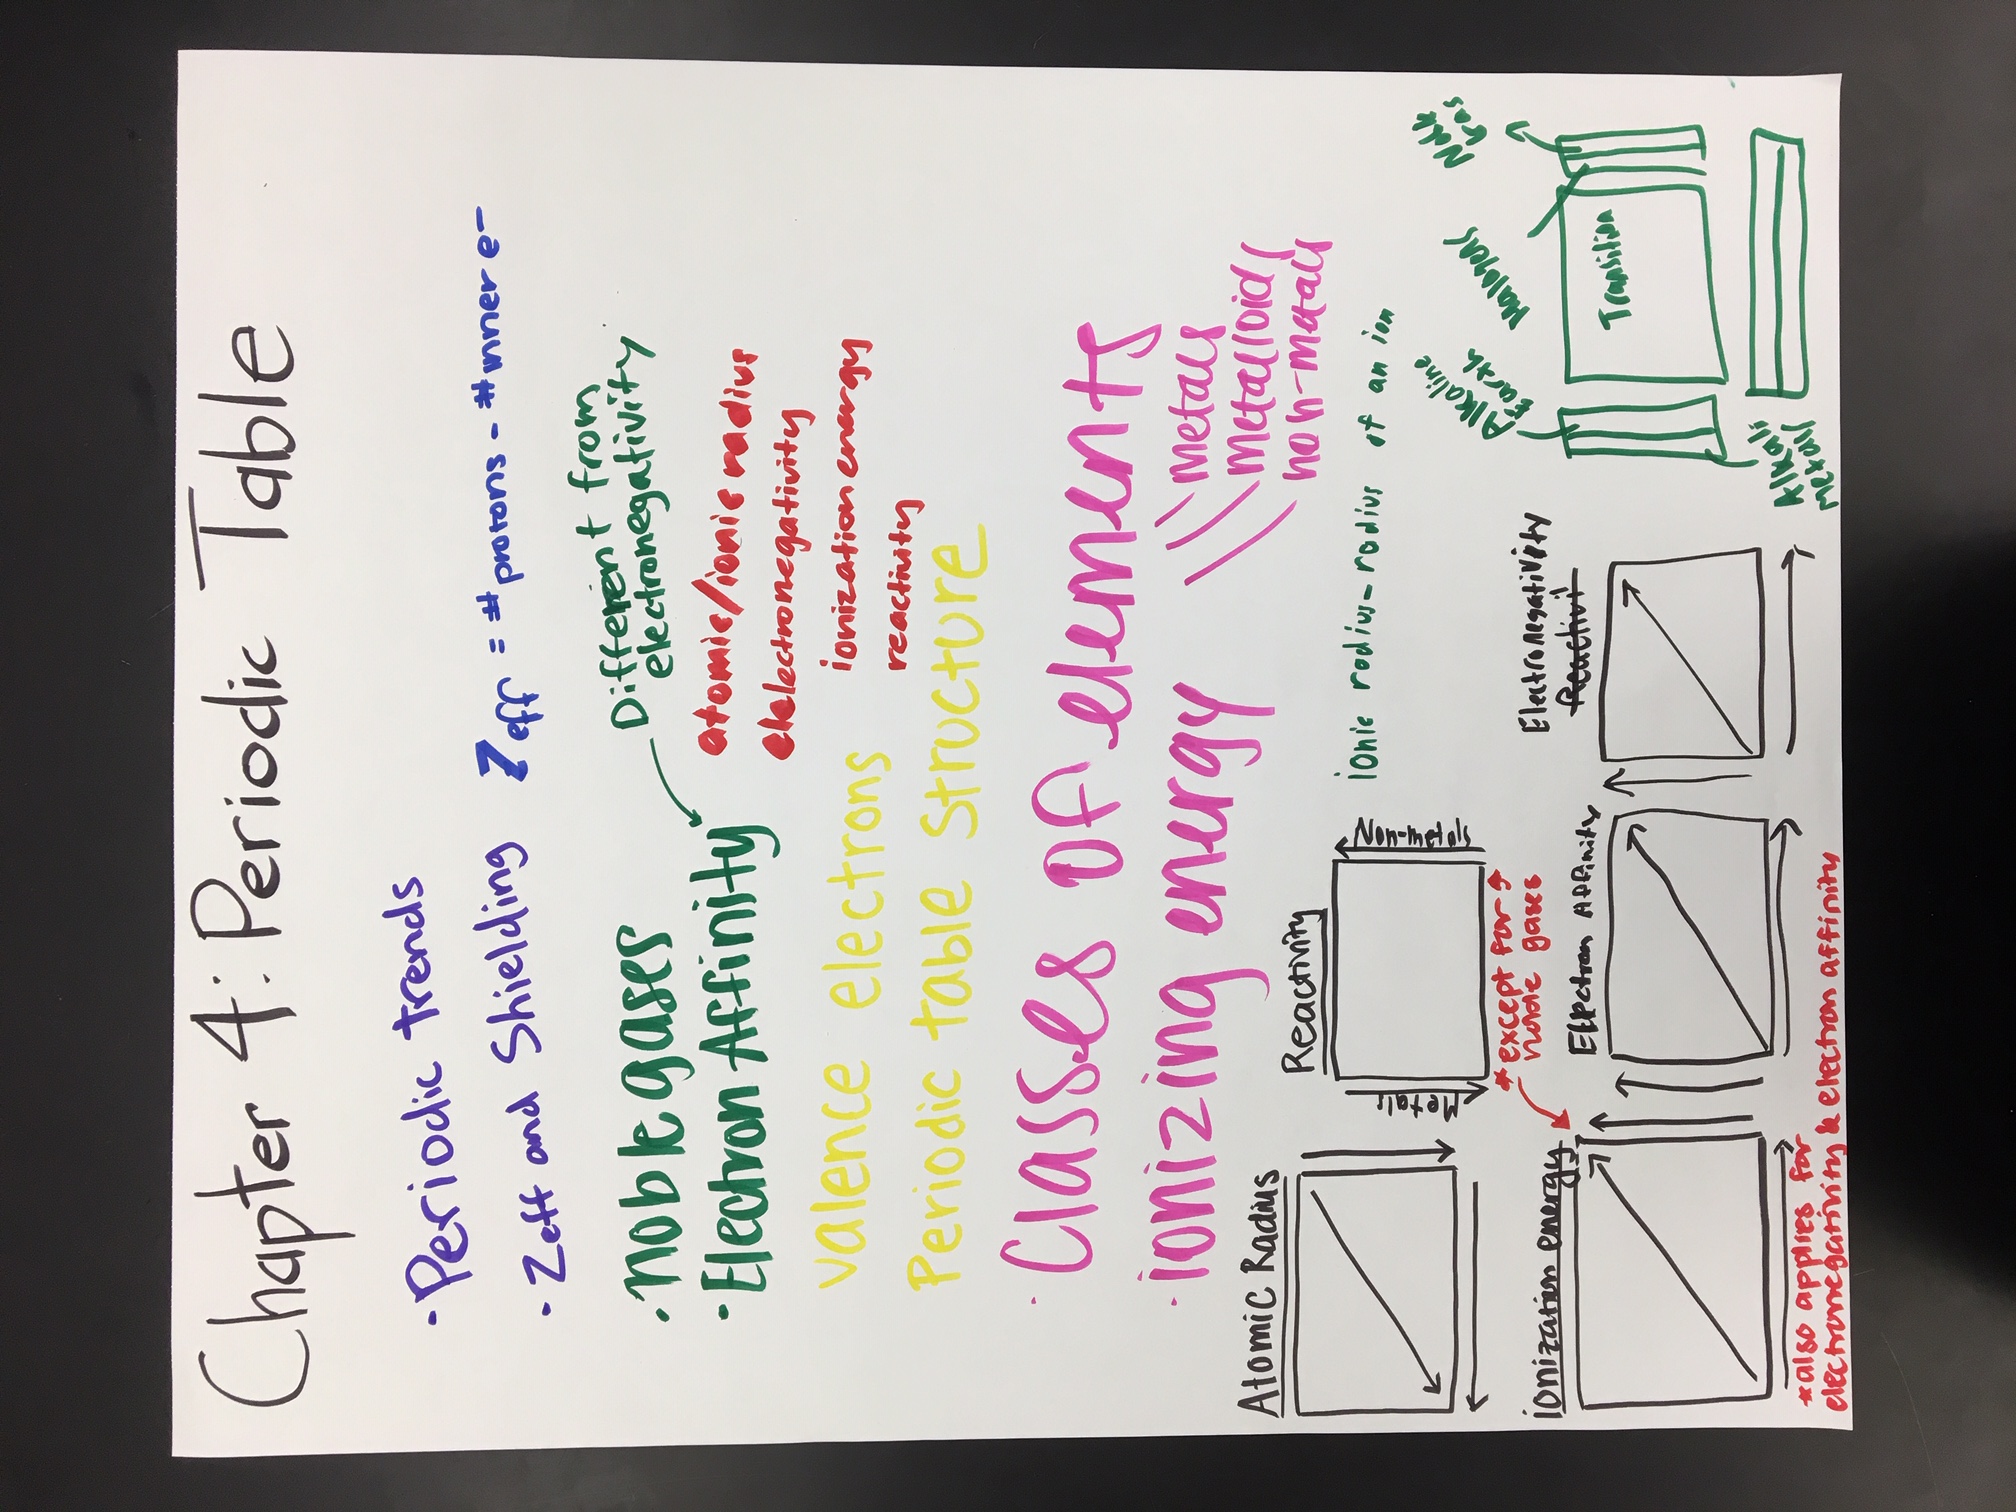 Chapter 4: Periodic Table
• Periodic trends
• Zeff and Shielding
Zeff = #protons - #inner e-
• noble gases
• Electron Affinity
Different from
electronegativity
atomic/ionic radius
electronegativity
ionization energy
reactivity
valence electrons
Periodic table structure
• Classes of elements
metals
metalloids
non-metals
• ionizing energy
ionic radius - radius of an ion
Atomic Radius
Reactivity
Metals
Non-metals
* except for
noble gases
ionization energy
Electron Affinity
Electronegativity
Reactivit
*also applies for
electronegativity & electron affinity
Alkaline
Earth
Halogens
Noble
Gas
Transition
Alkali
Metal